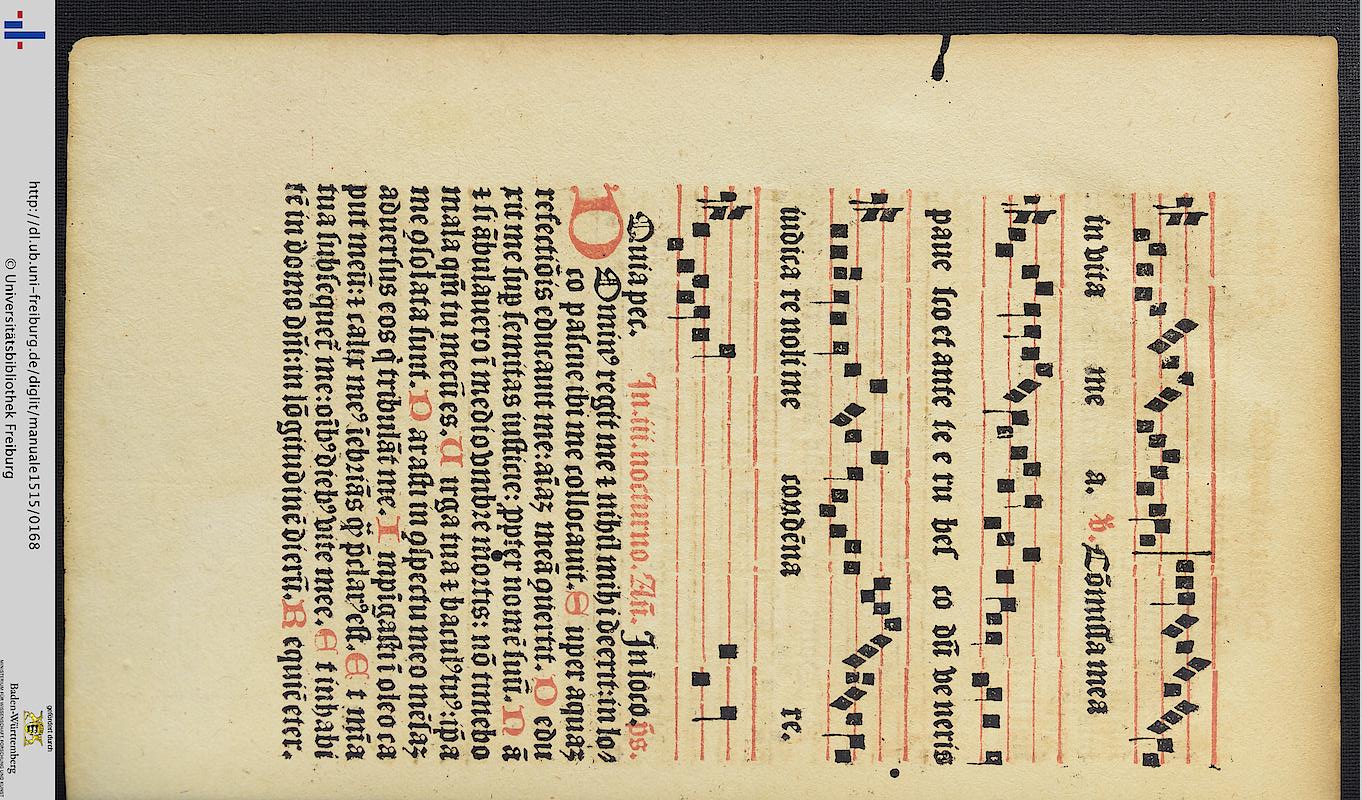 in vita me a. V. Cōmissa mea
paue sco et ante te e ru bes co dū ve neris
iudica re noli me condēna re.
Quia pec. In .iii. nocturno. Añ. In loco. ps.
Dominꝰ regit me ⁊ nihil mihi deerit: in lo
co pascue ibi me collocauit. Super aquaꝫ
refectiōis educauit me: aīaꝫ meā ꝯuertit. Dedu
xit me sup semitas iusticie: ppter nomē suū. Nā
⁊ si ābulauero ī medio vmbre mortis: nō timebo
mala qm̄ tu mecū es. Uirga tua ⁊ baculꝰ tuꝰ ip̄a
me ꝯsolata sunt. Parasti in ꝯspectu meo mēsaꝫ
aduersus eos q̇ tribulāt me. Impīgasti ī oleo ca
put meū: ⁊ calix meꝰ īebriās q̄ꝫ p̄clarꝰ est. Et mīa
tua subsequet̄ me: oībꝰ diebꝰ vite mee. Et inhabi
tē in domo dn̄i: in lōgitudinē dierū. Requiē eter.
http://dl.ub.uni-freiburg.de/diglit/manuale1515/0168
© Universitätsbibliothek Freiburg
gefördert durch
Baden-Württemberg